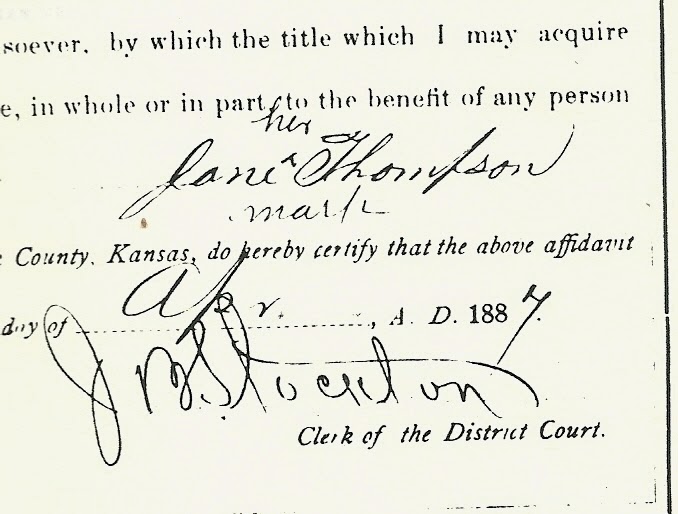 soever, by which the title which I may acquire
e, in whole or in part, to the benefit of any person
her
Jane x Thompson
mark
County, Kansas, do hereby certify that the above affidavit
day of Apr. , A. D. 1887.
J B Stockton
Clerk of the District Court.